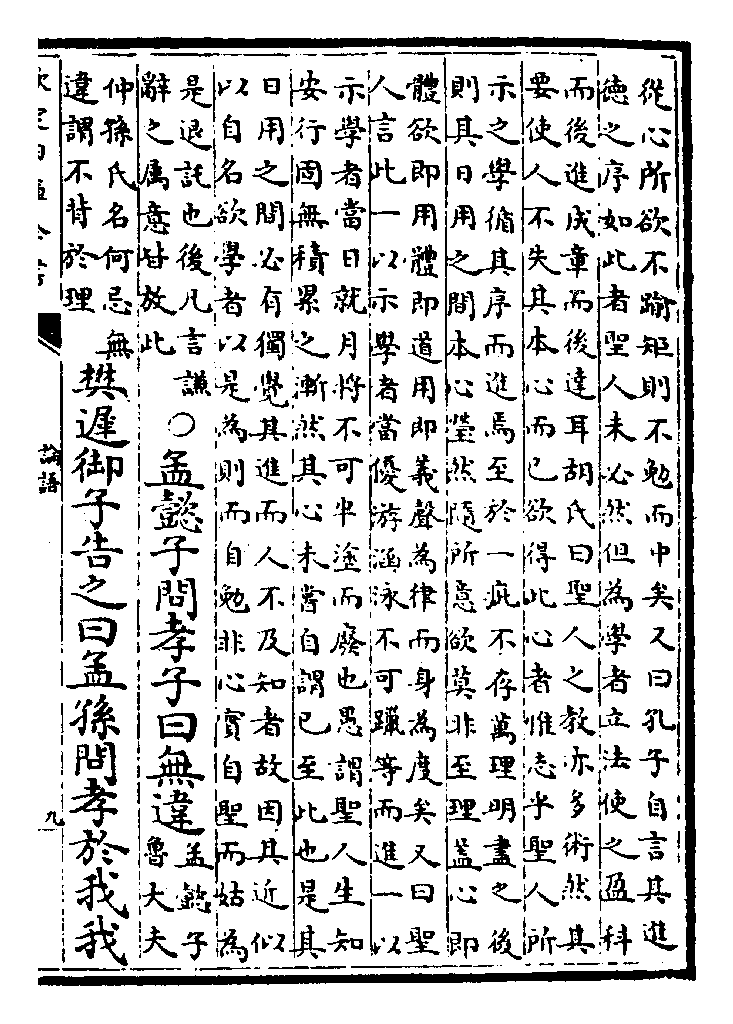 從心所欲不踰矩則不勉而中矣又曰孔子自言其進
德之序如此者聖人未必然但為學者立法使之盈科
而後進成章而後達耳胡氏曰聖人之教亦多術然其
要使人不失其本心而已欲得此心者惟志乎聖人所
示之學循其序而進焉至於一疵不存萬理明盡之後
則其日用之間本心瑩然隨所意欲莫非至理葢心即
體欲即用體即道用即義聲為律而身為度矣又曰聖
人言此一以示學者當優游涵泳不可躐等而進一以
示學者當日就月將不可半塗而廢也愚謂聖人生知
安行固無積累之漸然其心未嘗自謂已至此也是其
日用之間必有獨覺其進而人不及知者故因其近似
以自名欲學者以是為則而自勉非心實自聖而姑為
是退託也後凡言謙
辭之屬意皆放此
○孟懿子問孝子曰無違
孟懿子
魯大夫
仲孫氏名何忌無
違謂不背於理
樊遲御子告之曰孟孫問孝於我我
論語
九